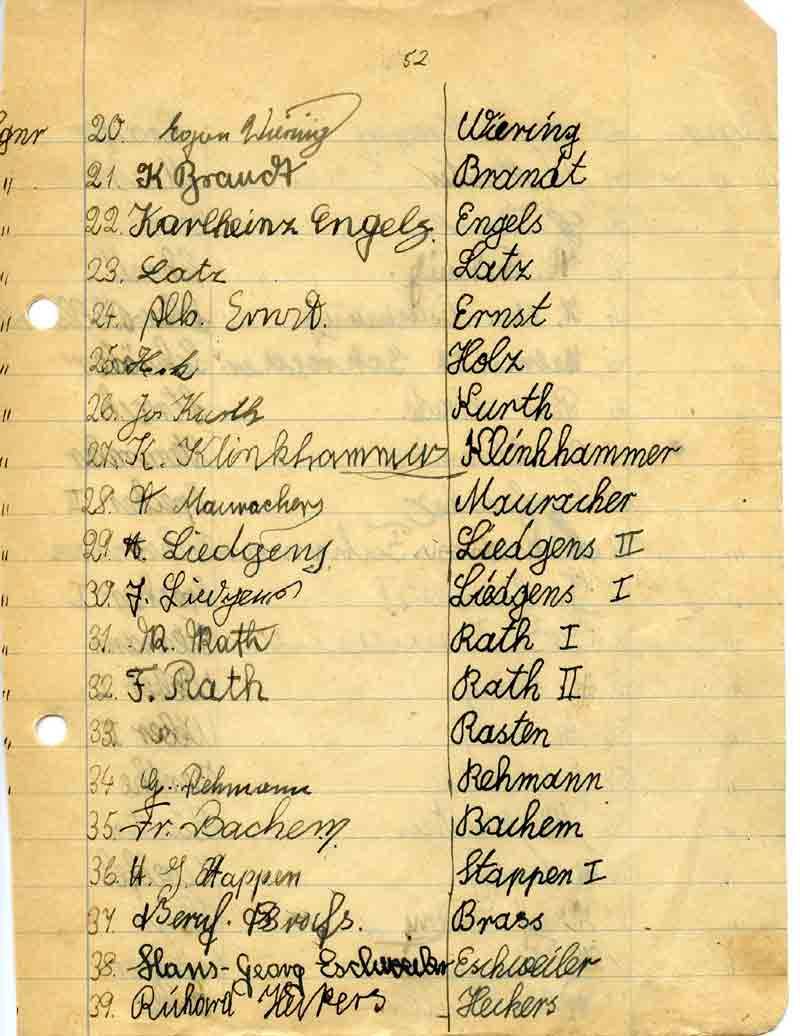 52
gnr 20. Egon Wiering Wiering
" 21. K Brandt Brandt
" 22. Karlheinz Engels. Engels
" 23. Latz Latz
" 24. Alb. Ernst. Ernst
" 25. Holz
" 26. Jos Kurth Kurth
" 27. K. Klinkhammer Klinkhammer
" 28. Maurachers Mauracher
" 29. A. Liedgens Liedgens II
" 30. J. Liedgens Liedgens I
" 31. Rath Rath I
" 32. F. Rath Rath II
" 33. Rasten
34 G. Rehmann Rehmann
35. Fr. Bachem Bachem
36. H. J. Stappen Stappen I
37. Brass
38. Hans-Georg Eschweiler Eschweiler
39. Richard Heckers Heckers